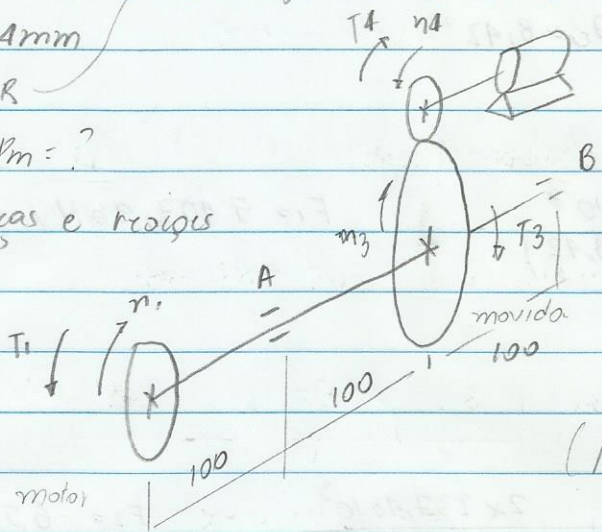 4mm
R
Pm = ?
ças e reações
T4 n4
B
n3
T3
A
movida
n1
T1
100
100
100
motor